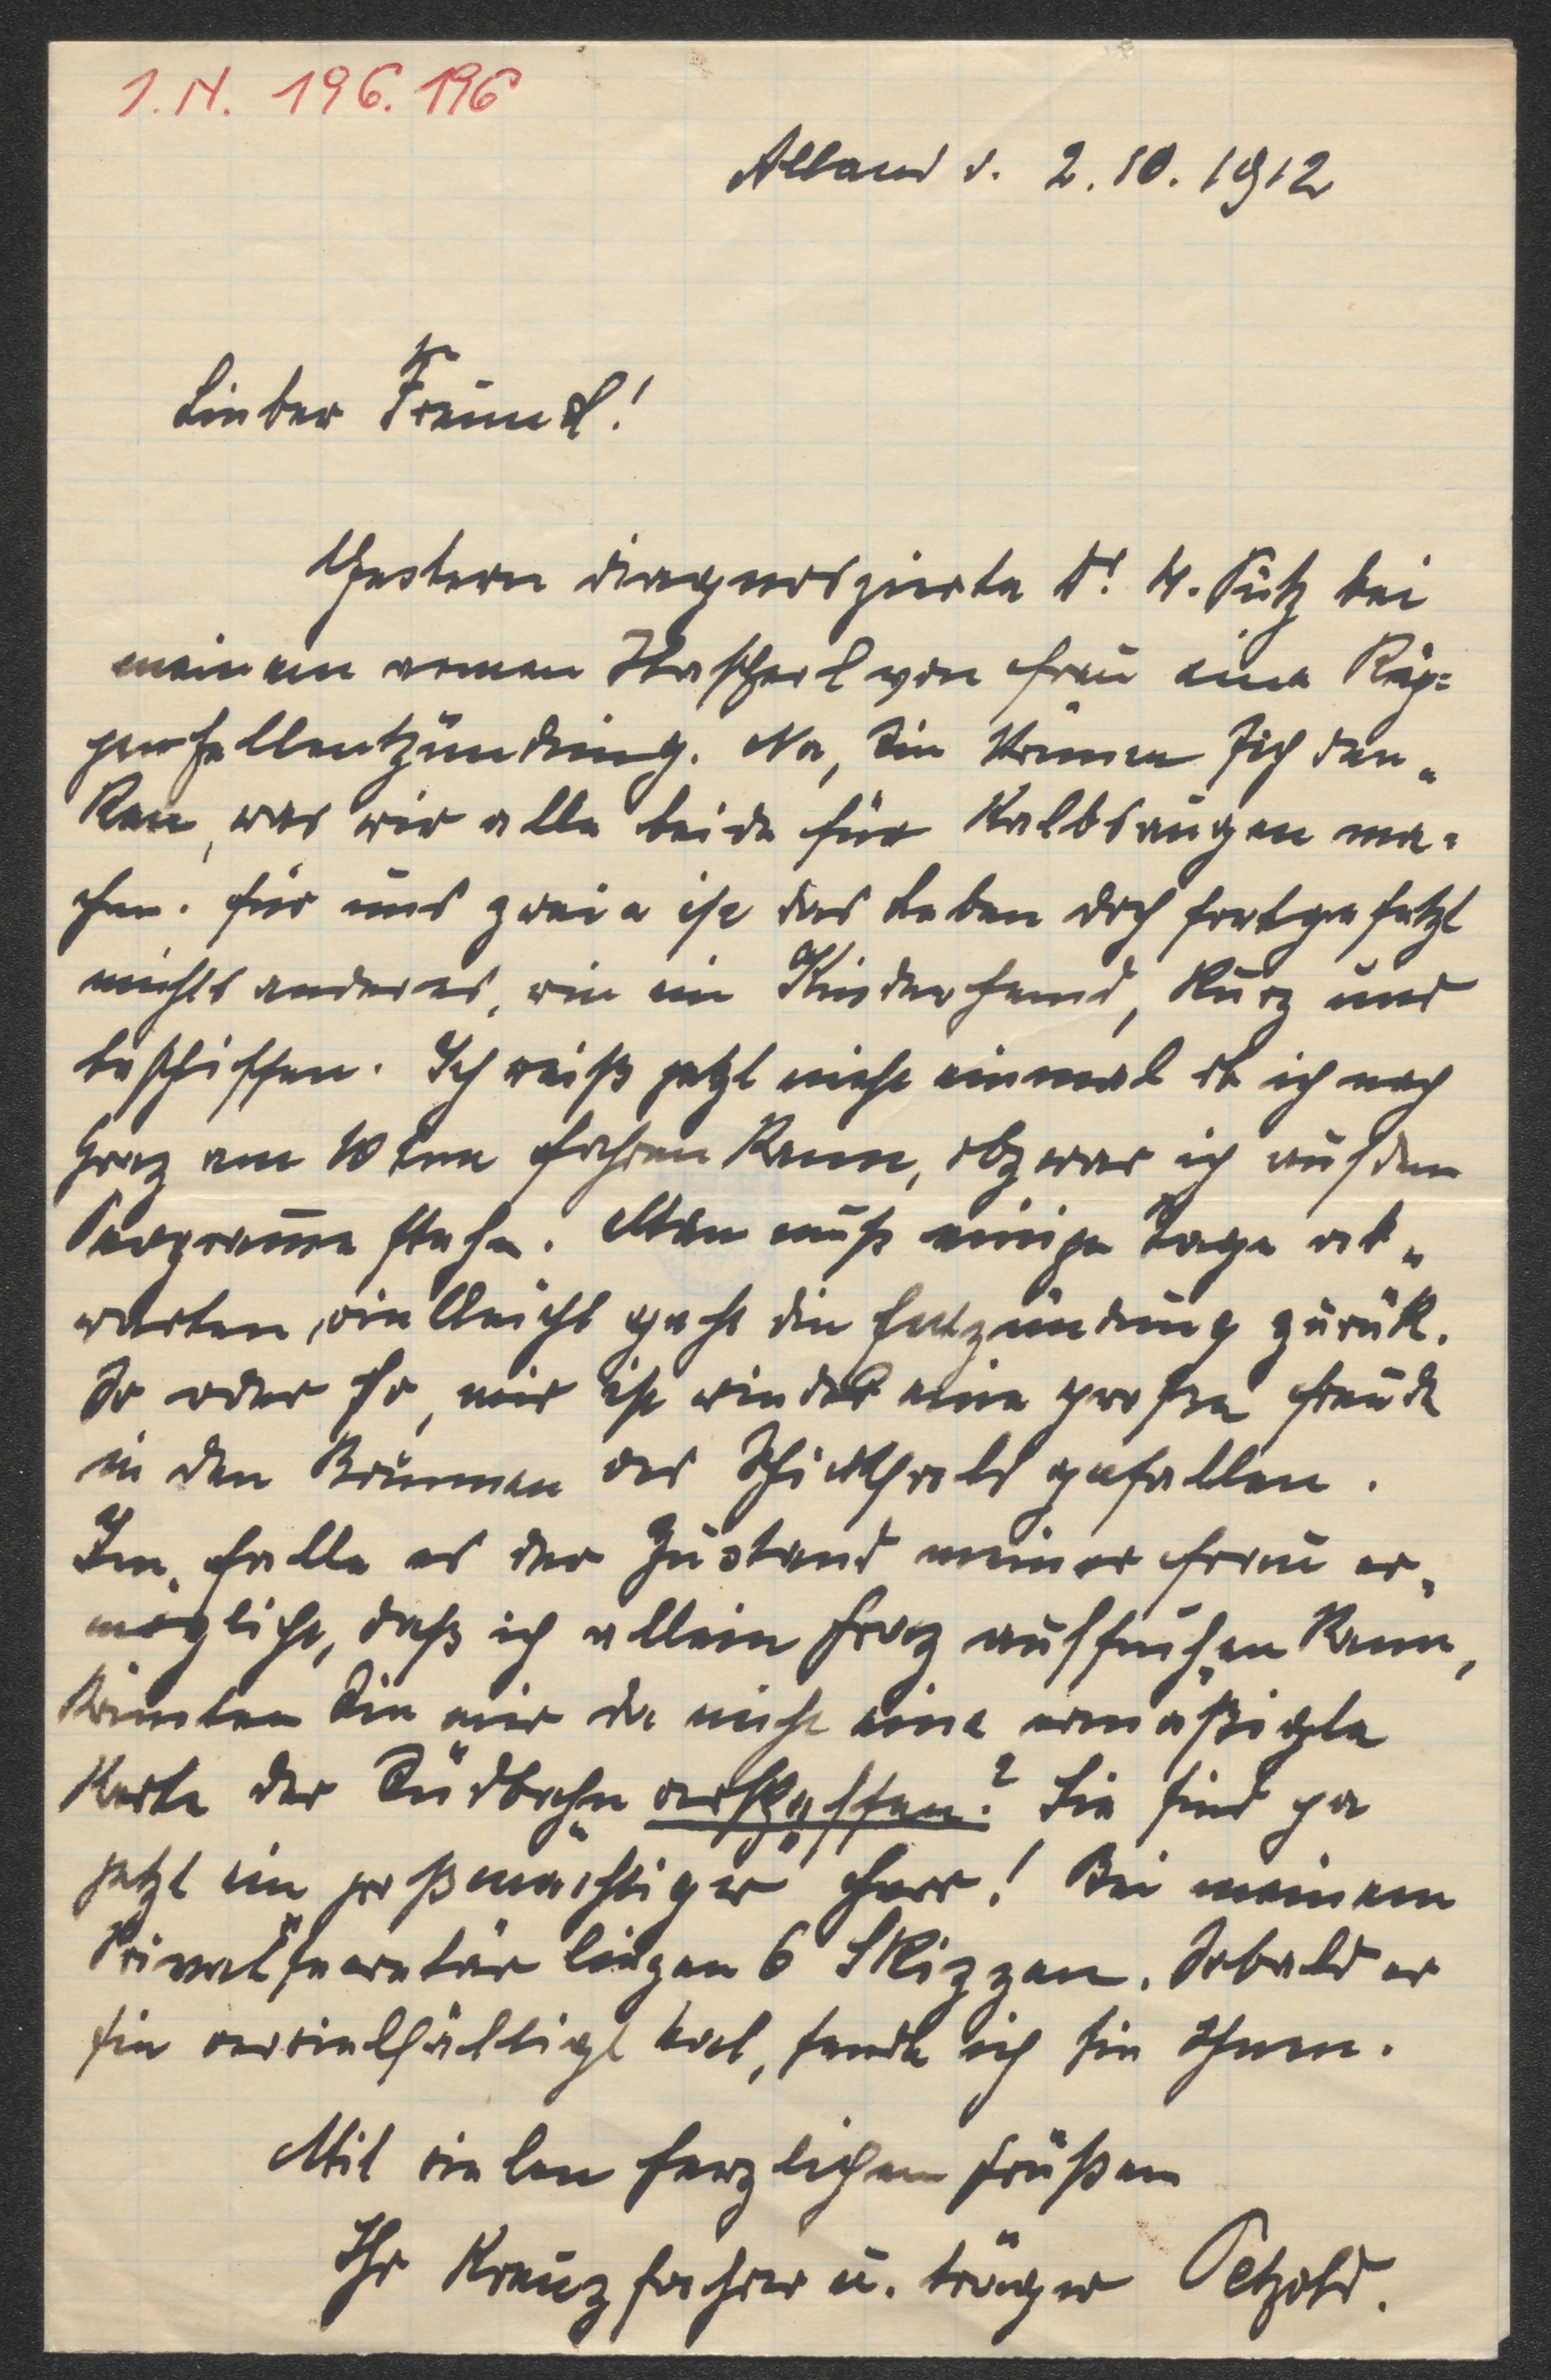 I. N. 196.196
Alland d. 2.10.1912
Lieber Freund!
Gestern diagnoszierte Dr. H. bei
meinem armen Hascherl von Frau eine Rip=
penfellentzündung. Na, Sie können sich den„
ken, was wir alle beide für Kalbsaugen ma„
chen. Für uns zweie ist das Leben doch fortgesetzt
nichts anderes, wie ein Kinderhemd, kurz und
beschissen. Ich weiß jetzt nicht einmal ob ich nach
Graz am 10ten fahren kann, obzwar ich auf dem
Programme stehe. Man muß einige Tage ab„
warten, vielleicht geht die Entzündung zurük.
So oder so, mir ist wieder eine große Freude
in den Brunnen des Schicksals gefallen.
Im Falle es der Zustand meiner Frau er„
möglicht, daß ich allein Graz aufsuchen kann,
könnten Sie mir da nicht eine ermäßigte
Karte der Südbahn verschaffen? Sie sind ja
jetzt ein „großmächtiger" Herr! Bei meinem
Privatsecretär liegen 6 Skizzen. Sobald er
sie vervielfältigt hat, sende ich sie Ihnen.
Mit vielen herzlichen Grüßen
Ihr Kreuzfahrer u. träger Petzold.